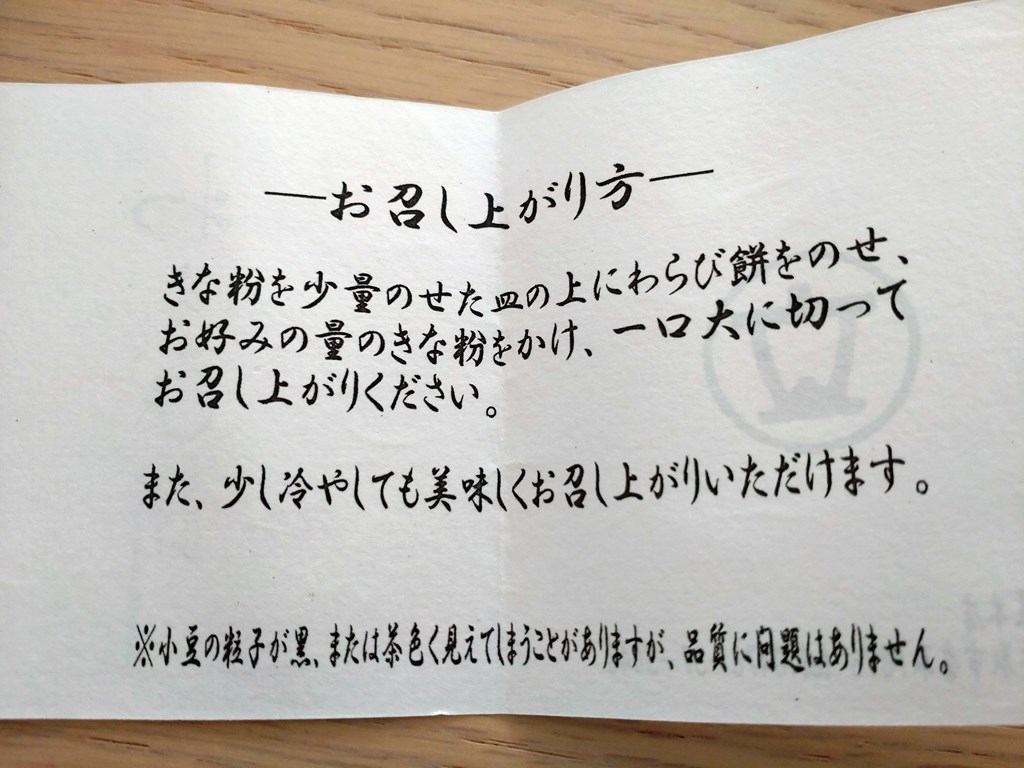 ―お召し上がり方―
きな粉を少量のせた皿の上にわらび餅をのせ、
お好みの量のきな粉をかけ、一口大に切って
お召し上がりください。
また、少し冷やしても美味しくお召し上がりいただけます。
※小豆の粒子が黒、または茶色く見えてしまうことがありますが、品質に問題はありません。